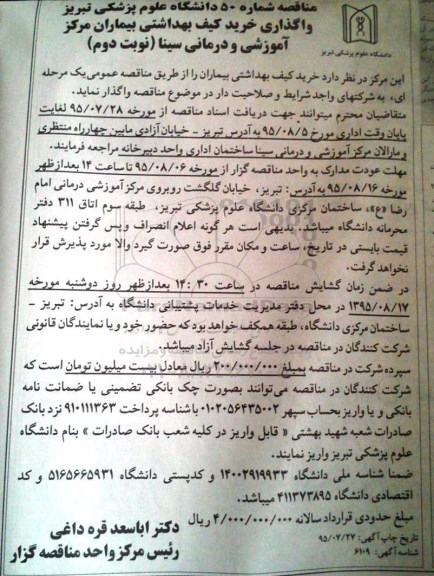 مناقصه شماره ۵۰ دانشگاه علوم پزشکی تبریز
واگذاری خرید کیف بهداشتی بیماران مرکز
آموزشی و درمانی سینا (نوبت دوم)
دانشگاه علوم پزشکی تبریز
این مرکز در نظر دارد خرید کیف بهداشتی بیماران را از طریق مناقصه عمومی یک مرحله
ای، به شرکتهای واجد شرایط و صلاحیت دار در موضوع مناقصه واگذار نماید.
متقاضیان محترم میتوانند جهت دریافت اسناد مناقصه از مورخه ۹۵/۰۷/۲۸ لغایت
پایان وقت اداری مورخ ۹۵/۰۸/۵ به آدرس تبریز - خیابان آزادی مابین چهارراه منتظری
و مارالان مرکز آموزشی و درمانی سینا ساختمان اداری واحد دبیرخانه مراجعه فرمایند.
مهلت عودت مدارک به واحد مناقصه گزار از مورخه ۹۵/۰۸/۰۶ تا ساعت ۱۴ بعدازظهر
مورخه ۹۵/۰۸/۱۶ به آدرس: تبریز، خیابان گلگشت روبروی مرکز آموزشی درمانی امام
رضا «ع»، ساختمان مرکزی دانشگاه علوم پزشکی تبریز، طبقه سوم اتاق ۳۱۱ دفتر
محرمانه دانشگاه میباشد. بدیهی است هر گونه اعلام انصراف و پس گرفتن پیشنهاد
قیمت بایستی در تاریخ، ساعت و مکان مقرر فوق صورت گیرد والا مورد پذیرش قرار
نخواهد گرفت.
در ضمن زمان گشایش مناقصه در ساعت ۱۴:۳۰ بعدازظهر روز دوشنبه مورخه
۱۳۹۵/۰۸/۱۷ در محل دفتر مدیریت خدمات پشتیبانی دانشگاه به آدرس: تبریز -
ساختمان مرکزی دانشگاه، طبقه همکف خواهد بود که حضور خود و یا نمایندگان قانونی
شرکت کنندگان در مناقصه در جلسه گشایش آزاد میباشد.
سپرده شرکت در مناقصه بمبلغ ۲۰۰/۰۰۰/۰۰۰ ریال معادل بیست میلیون تومان است که
شرکت کنندگان در مناقصه می‌توانند بصورت چک بانکی تضمینی یا ضمانت نامه
بانکی و یا واریز بحساب سپهر ۰۱۰۲۰۵۶۴۳۵۰۰۲ با شناسه پرداخت ۹۱۰۱۱۱۳۶۳ نزد بانک
صادرات شعبه شهید بهشتی « قابل واریز در کلیه شعب بانک صادرات » بنام دانشگاه
علوم پزشکی تبریز واریز نمایند.
ضمنا شناسه ملی دانشگاه ۱۴۰۰۲۹۱۹۹۳۳ و کدپستی دانشگاه ۵۱۶۵۶۶۵۹۳۱ و کد
اقتصادی دانشگاه ۴۱۱۳۷۳۸۹۵ میباشد.
مبلغ حدودی قرارداد سالانه ۴/۰۰۰/۰۰۰/۰۰۰ ریال
تاریخ چاپ آگهی: ۹۵/۰۷/۲۷
شناسه آگهی: ۶۱۰۹
دکتر اباسعد قره داغی
رئیس مرکز واحد مناقصه گزار